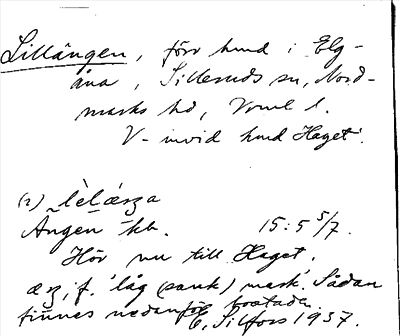 Lillängen, förr hmd i Elg-
åna, Silleruds sn, Nord-
marks hd, Vrml l.
V- invid hmd Haget.
(2) lèl
Ängen -kk. 15:5 5/7.
Hör nu till Haget.
æɳ, f. 'låg (sank) mark'. Sådan
finnes nedanför bostaden.
E. Silfors 1937.